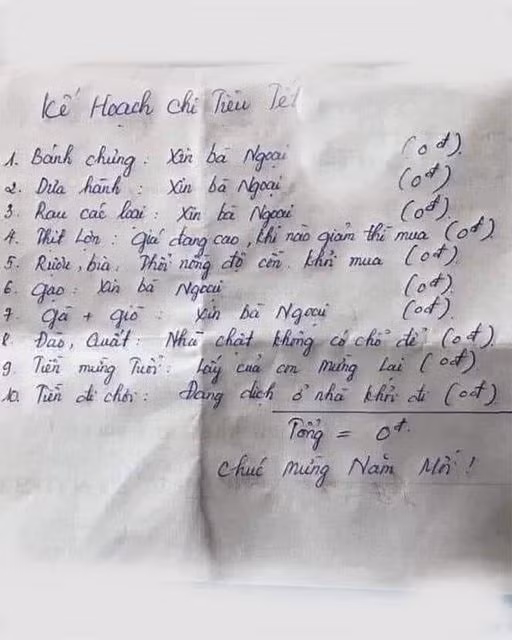 Kế Hoạch chi Tiêu Tết
1. Bánh chưng: Xin bà Ngoại (0đ)
2. Dưa hành: Xin bà Ngoại (0đ)
3. Rau các loại: Xin bà Ngoại (0đ)
4. Thịt Lợn: giá đang cao, khi nào giảm thì mua (0đ)
5. Rượu, bia: Thổi nồng độ cồn. khỏi mua (0đ)
6. gạo: Xin bà Ngoại (0đ)
7. gà + giò: Xin bà Ngoại (0đ)
8. Đào, Quất: Nhà chật không có chỗ để (0đ)
9. Tiền mừng Tuổi: Lấy của con mừng lại (0đ)
10. Tiền đi chơi: Đang dịch ở nhà khỏi đi (0đ)
Tổng = 0đ.
Chúc mừng Năm Mới!